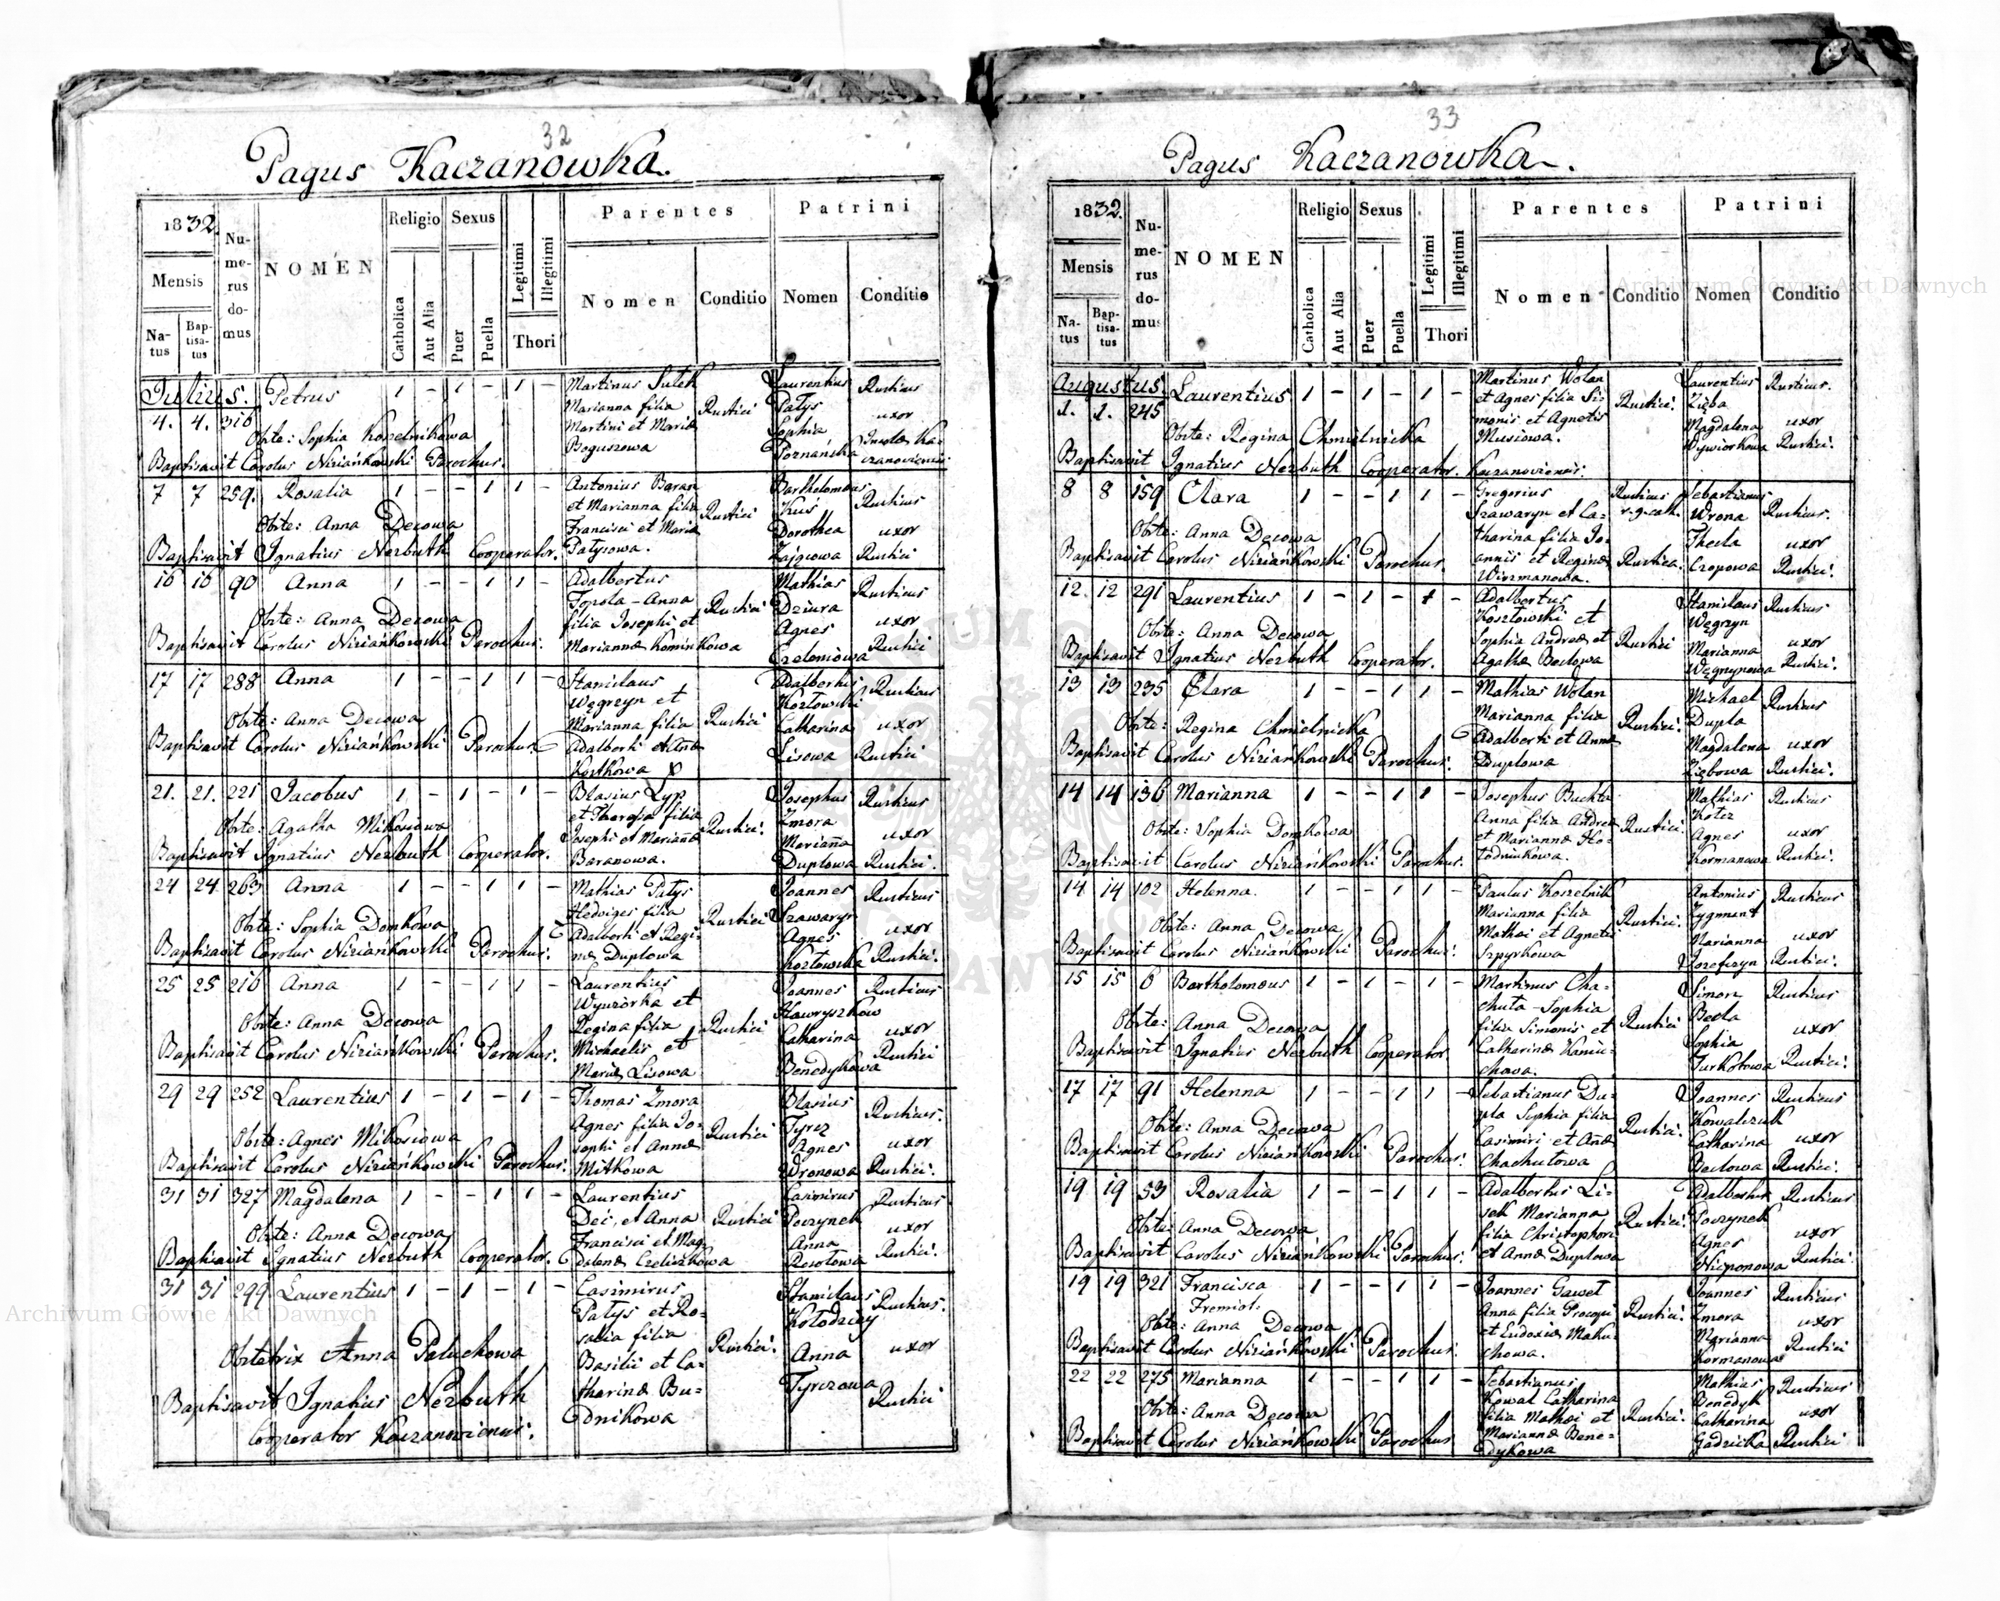 32
Pagus Kaczanowka.
1832.
Mensis
Natus
Baptisatus
Numerus domus
NOMEN
Religio
Catholica
Aut Alia
Sexus
Puer
Puella
Legitimi
Illegitimi
Thori
Parentes
Nomen
Conditio
Patrini
Nomen
Conditio
Julius.
4. 4. 310 Petrus 1 - 1 - 1 -
Marianna filia
Martini et Mariæ
Boguszowa
Rustici
Laurentius
Patys
Sophia
Poznańska
Rusticus
uxor
Obste: Sophia Koszelnikowa
Baptisavit Carolus Niziańkowski Parochus.
7 7 259. Rosalia 1 - - 1 1 -
Antonius Baran
et Marianna filia
Francisci et Mariæ
Patysowa.
Rustici
Bartholomeus
Kus
Dorothea
Zajęcowa
Rusticus
uxor
Rustici
Obste: Anna Decowa
Baptisavit Ignatius Nerbuth Cooperator.
10 10 90 Anna 1 - - 1 1 -
Adalbertus
Topola - Anna
filia Josephi et
Mariannæ Kominkowa
Rustici
Mathias
Dziura
Agnes
Rusticus
uxor
Rustici
Obste: Anna Decowa
Baptisavit Carolus Niziańkowski Parochus.
17 17 288 Anna 1 - - 1 1 -
Stanislaus
Węgrzyn et
Marianna filia
Rustici
Adalbertus
Kozłowski
Catharina
Lisowa
Rusticus
uxor
Rustici
Obste: Anna Decowa
Baptisavit Carolus Niziańkowski Parochus.
21. 21. 221 Jacobus 1 - 1 - 1 -
Blasius Lyp
et Theresia filia
Josephi et Mariannæ
Baranowa.
Rustici.
Josephus
Zmora
Marianna
Duplowa
Rusticus
uxor
Rustici.
Obste: Agatha Mikosiowa
Baptisavit Ignatius Nerbuth Cooperator.
24 24 263 Anna 1 - - 1 1 -
Mathias Patys
Hedviges filia
Adalberti et Regi-
næ Duplowa
Rustici
Joannes
Szawaryn
Agnes
Kozłowska
Rusticus
uxor
Rustici.
Obste: Sophia Domkowa
Baptisavit Carolus Niziańkowski Parochus.
25 25 210 Anna 1 - - 1 1 -
Laurentius
Wywiórka et
Regina filia
Michaelis et
Mariæ Lisowa
Rustici
Joannes
Hawryszków
Catharina
Benedykowa
Rusticus
uxor
Rustici
Obste: Anna Decowa
Baptisavit Carolus Niziańkowski Parochus.
29 29 252 Laurentius 1 - 1 - 1 -
Thomas Zmora
Agnes filia Jo-
sephi et Annæ
Mitkowa
Rustici
Blasius
Tyrcz
Agnes
Wronowa
Rusticus.
uxor
Rustici.
Obste: Agnes Mikosiowa
Baptisavit Carolus Niziańkowski Parochus.
31 31 327 Magdalena 1 - - 1 1 -
Laurentius
Deć, et Anna
Francisci et Mag-
dalenæ Czeliszkowa
Rustici
Casimirus
Poczynek
Anna
Rusticus
uxor
Rustici.
Obste: Anna Decowa
Baptisavit Ignatius Nerbuth Cooperator.
31 31 299 Laurentius 1 - 1 - 1 -
Casimirus
Patys et Ro-
salia filia
Basilii et Ca-
tharinæ Bu-
dnikowa
Rustici.
Stanislaus
Kołodziey
Anna
Tyrczowa
Rusticus.
uxor
Rustici
Obstetrix Anna Paluchowa
Baptisavit Ignatius Nerbuth
Cooperator Kaczanoviensis.
33
Pagus Kaczanowka.
1832.
Mensis
Natus
Baptisatus
Numerus domus
NOMEN
Religio
Catholica
Aut Alia
Sexus
Puer
Puella
Legitimi
Illegitimi
Thori
Parentes
Nomen
Conditio
Patrini
Nomen
Conditio
Augustus
1. 1. 245 Laurentius 1 - 1 - 1 -
Martinus Wolan
et Agnes filia Si-
monis et Agnetis
Musiowa.
Rustici.
Laurentius
Zięba
Magdalena
Wywiorkowa
Rusticus.
uxor
Rustici.
Obste: Regina Chmielnicka
Baptisavit Ignatius Nerbuth Cooperator Kaczanoviensis.
8 8 159 Clara 1 - - 1 1 -
Gregorius
Szawaryn et Ca-
tharina filia Jo-
annis et Reginæ
Rusticus
r. g. cath.
Rustica.
Sebastianus
Wrona
Thecla
Czopowa
Rusticus.
uxor
Rustici.
Obste: Anna Decowa
Baptisavit Carolus Niziańkowski Parochus.
12. 12 291 Laurentius 1 - 1 - 1 -
Adalbertus
Kozłowski et
Sophia Andreæ et
Agathæ Beclowa
Rustici
Stanislaus
Węgrzyn
Marianna
Węgrzynowa
Rusticus
uxor
Rustici.
Obste: Anna Decowa
Baptisavit Ignatius Nerbuth Cooperator.
13 13 235 Clara 1 - - 1 1 -
Mathias Wolan
Marianna filia
Adalberti et Annæ
Duplowa
Rustici.
Michael
Dupla
Magdalena
Ziębowa
Rusticus
uxor
Rustici.
Obste: Regina Chmielnicka
Baptisavit Carolus Niziańkowski Parochus.
14 14 136 Marianna 1 - - 1 1 -
Josephus Buchta
Anna filia Andreæ
et Mariannæ Ho-
Rustici.
Mathias
Kotez
Agnes
Kormanowa
Rusticus
uxor
Rustici.
Obste: Sophia Domkowa
Baptisavit Carolus Niziańkowski Parochus.
14 14 102 Helenna. 1 - - 1 1 -
Paulus Koszelnik
Marianna filia
Mathæi et Agnetis
Szpyrkowa
Rustici.
Antonius
Zygmunt
Marianna
Jozefczyn
Rusticus
uxor
Rustici.
Obste: Anna Decowa
Baptisavit Carolus Niziańkowski Parochus.
15 15 6 Bartholomeus 1 - 1 - 1 -
Martinus Cha-
chuta - Sophia
filia Simonis et
Catharinæ Kaniu-
chowa.
Rustici
Simon
Becla
Sophia
Turkotowa
Rusticus
uxor
Rustici.
Obste: Anna Decowa
Baptisavit Ignatius Nerbuth Cooperator.
17 17 91 Helenna 1 - - 1 1 -
Sebastianus Du-
pla Sophia filia
Casimiri et Annæ
Chachutowa
Rustici.
Joannes
Kowalczuk
Catharina
Beclowa
Rusticus
uxor
Rustici.
Obste: Anna Decowa
Baptisavit Carolus Niziańkowski Parochus.
19 19 53 Rosalia 1 - - 1 1 -
Adalbertus Li-
sek Marianna
filia Christophori
et Annæ Duplowa
Rustici.
Adalbertus
Poczynek
Agnes
Nieponowa
Rusticus
uxor
Rustici
Obste: Anna Decowa
Baptisavit Carolus Niziańkowski Parochus.
19 19 321 Francisca 1 - - 1 1 -
Fremiot.
Joannes Gawet
Anna filia Procopii
et Eudoxiæ Maku-
chowa.
Rustici.
Joannes
Zmora
Marianna
Kormanowa
Rusticus
uxor
Rustici
Obste: Anna Decowa
Baptisavit Carolus Niziańkowski Parochus.
22 22 275 Marianna 1 - - 1 1 -
Sebastianus
Kowal Catharina
filia Mathæi et
Mariannæ Bene-
dykowa
Rustici.
Mathias
Benedyk
Catharina
Gadzicka
Rusticus
uxor
Rustici
Obste: Anna Decowa
Baptisavit Carolus Niziańkowski Parochus
Archiwum Główne Akt Dawnych
Archiwum Główne Akt Dawnych